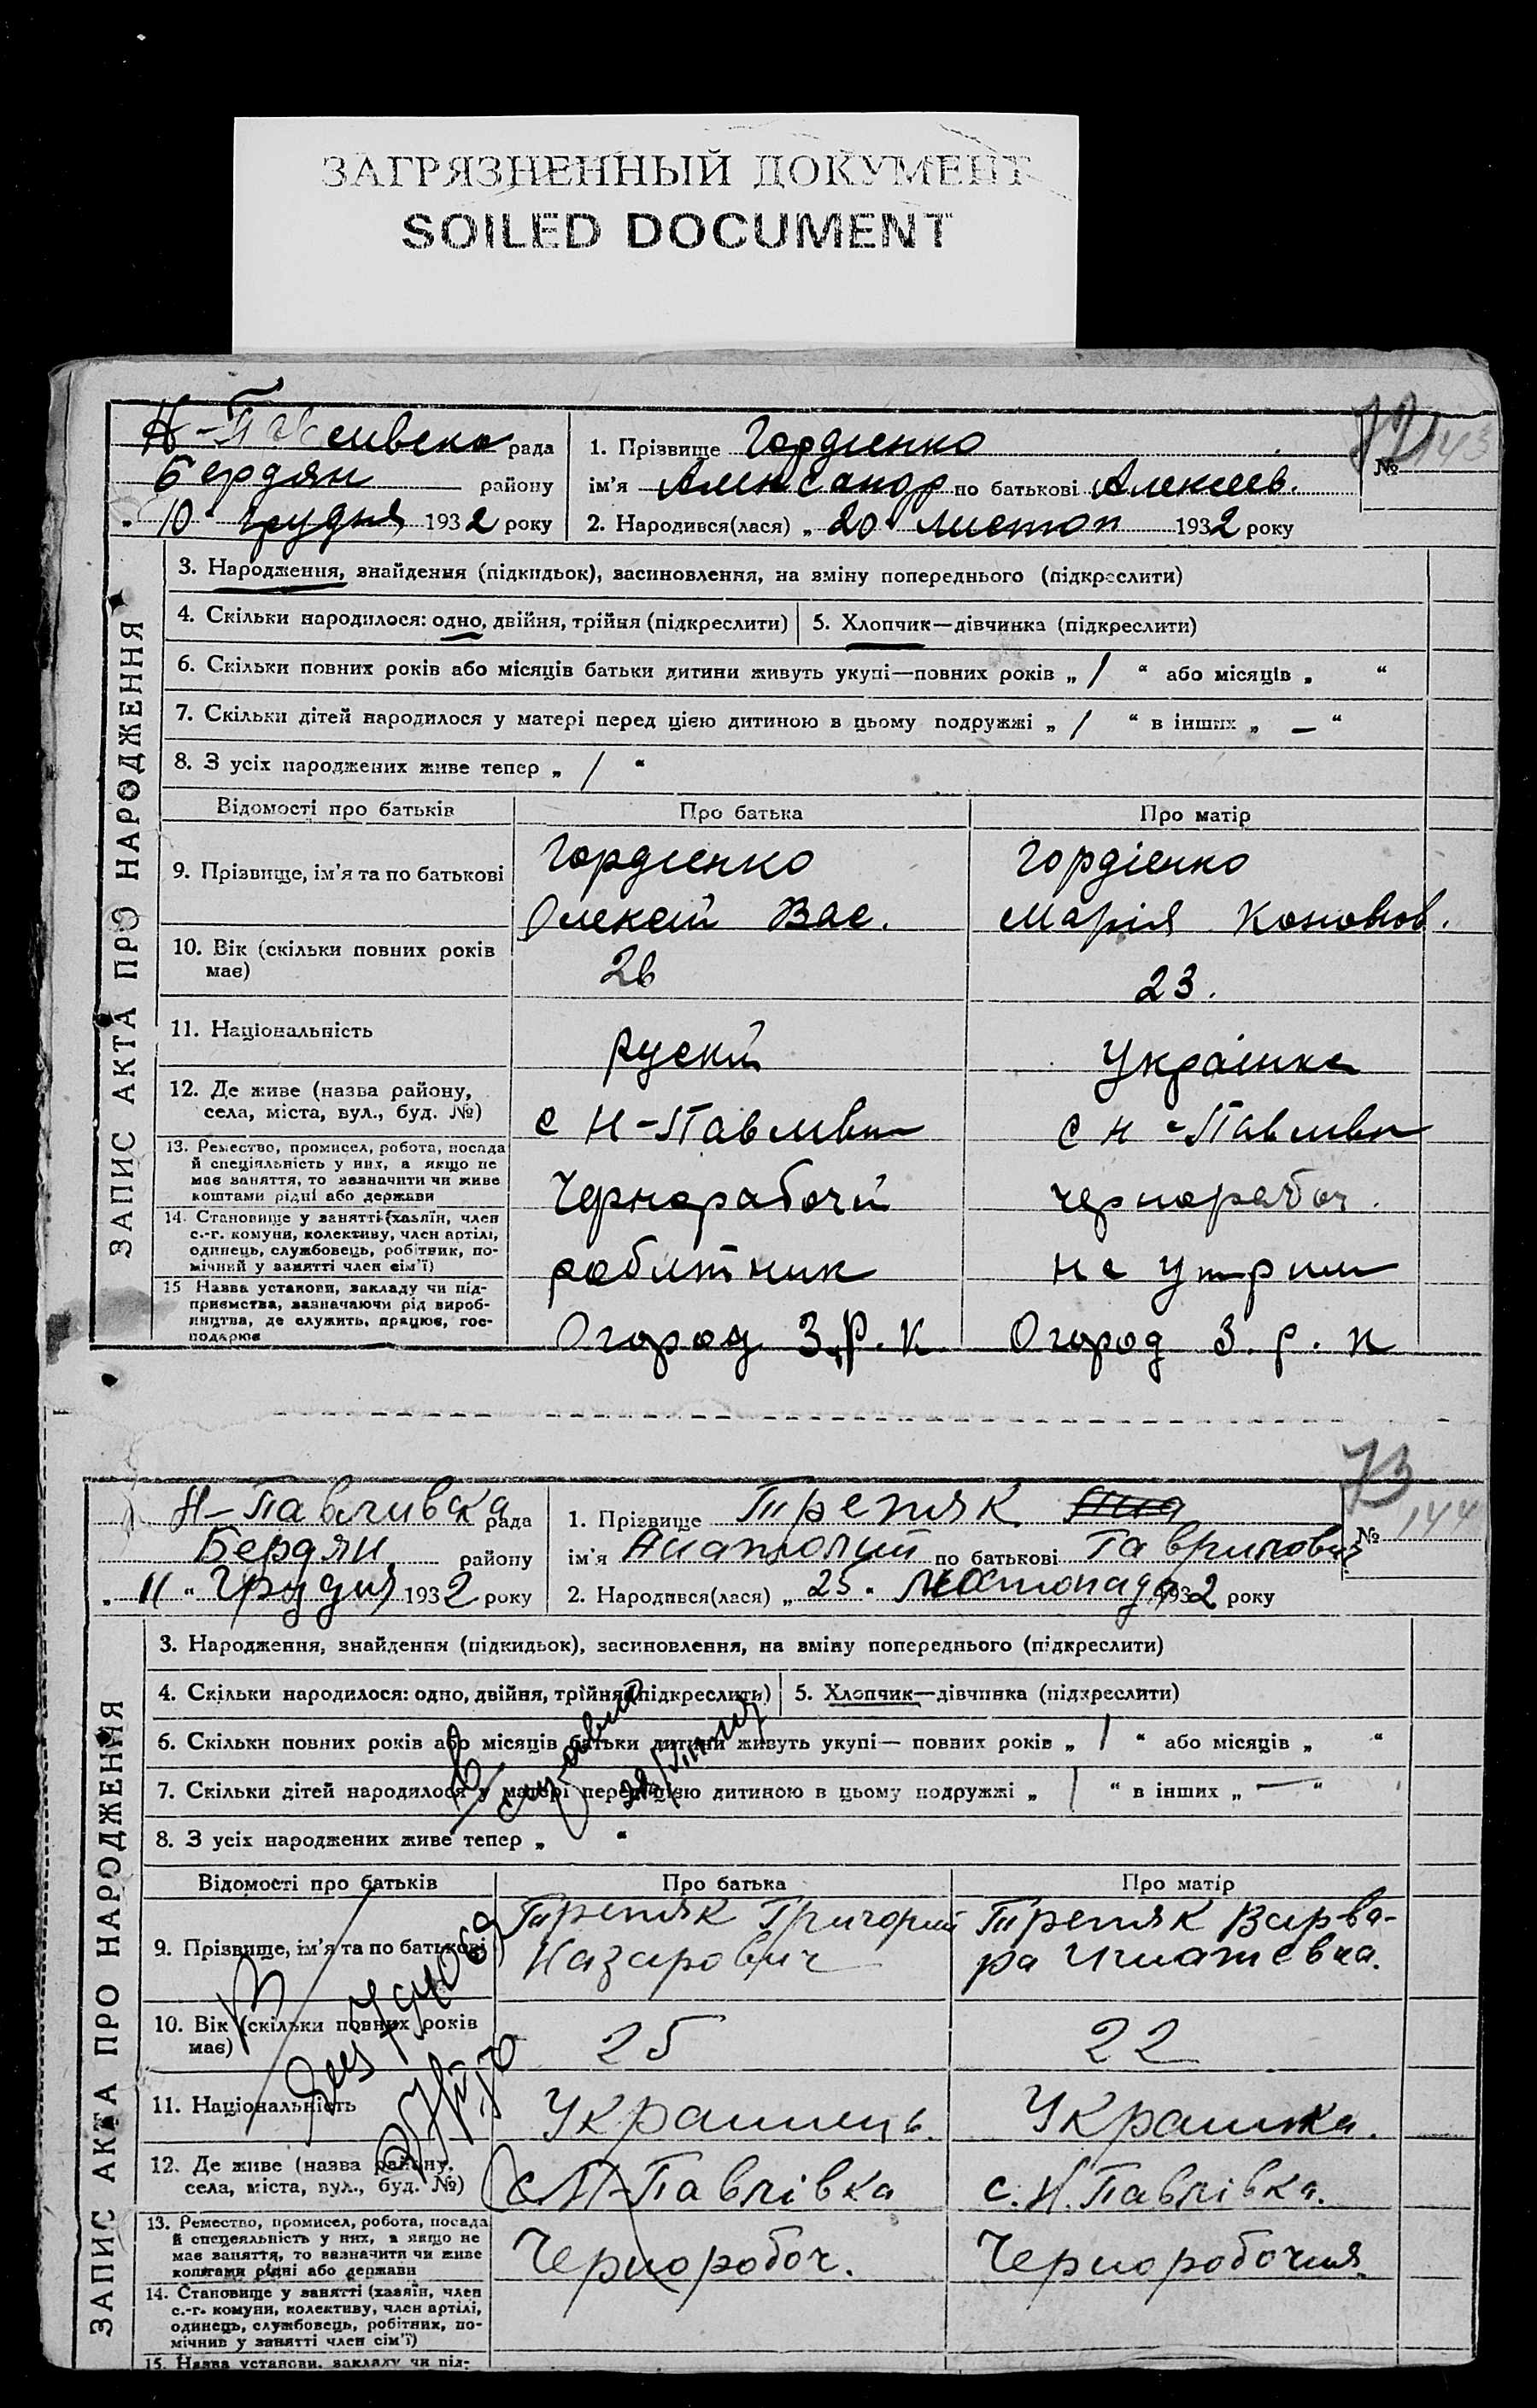 ЗАГРЯЗНЕННЫЙ ДОКУМЕНТ
SOILED DOCUMENT
72
№ 143
Н-Павливска рада
Бердян району
„ 10 " грудня 1932 року
1. Прізвище Гордіенко
ім'я Александр по батькові Алексеев.
2. Народився(лася) „ 20 " листоп 1932 року
ЗАПИС АКТА ПРО НАРОДЖЕННЯ
3. Народження, знайдення (підкидьок), засиновлення, на зміну попереднього (підкреслити)
4. Скільки народилося: одно, двійня, трійня (підкреслити)
5. Хлопчик—дівчинка (підкреслити)
6. Скільки повних років або місяців батьки дитини живуть укупі—повних років „ 1 " або місяців „ "
7. Скільки дітей народилося у матері перед цією дитиною в цьому подружжі „ 1 " в інших „ — "
8. З усіх народжених живе тепер „ 1 "
Відомості про батьків
Про батька
Про матір
9. Прізвище, ім'я та по батькові
Гордіенко
Олексій Вас.
Гордіенко
Марія Кононов.
10. Вік (скільки повних років
має)
26
23.
11. Національність
руский
Українка
12. Де живе (назва району,
села, міста, вул., буд. №)
с Н-Павливк
с Н-Павливк
13. Ремество, промисел, робота, посада
й спеціяльність у них, а якщо не
має заняття, то зазначити чи живе
коштами рідні або держави
Чернорабочи
чернорабоч.
14. Становище у занятті (хазяїн, член
с.-г. комуни, колективу, член артілі,
одинець, службовець, робітник, по-
мічний у занятті член сім'ї)
робитник
на утрим
15 Назва установи, закладу чи під-
приємства, зазначаючи рід вироб-
ництва, де служить, працює, гос-
подарює
Огород З.Р.К
Огород З.р.к
73
№ 144
Н-Павливска рада
Бердян. району
„ 11 " Грудня 1932 року
1. Прізвище Трепяк
ім'я Анатолий по батькові Гаврилович
2. Народився(лася) „ 25 " Листопада 1932 року
ЗАПИС АКТА ПРО НАРОДЖЕННЯ
3. Народження, знайдення (підкидьок), засиновлення, на зміну попереднього (підкреслити)
4. Скільки народилося: одно, двійня, трійня (підкреслити)
5. Хлопчик—дівчинка (підкреслити)
6. Скільки повних років або місяців батьки дитини живуть укупі— повних років „ 1 " або місяців „ "
7. Скільки дітей народилося у матері перед цією дитиною в цьому подружжі „ 1 " в інших „ — "
8. З усіх народжених живе тепер „ "
Відомості про батьків
Про батька
Про матір
9. Прізвище, ім'я та по батькові
Трепяк Григорий
Назарович
Трепяк Варва-
ра Игнатевна.
10. Вік (скільки повних років
має)
25
22
11. Національність
Украинець.
Украинка.
12. Де живе (назва району,
села, міста, вул., буд. №)
с Н-Павлівка
с. Н. Павлівка.
13. Ремество, промисел, робота, посада
й спецеяльність у них, а якщо не
має заняття, то зазначити чи живе
коштами рідні або держави
Черноробоч.
Черноробочия.
14. Становище у занятті (хазяїн, член
с.-г. комуни, колективу, член артілі,
одинець, службовець, робітник, по-
мічник у занятті член сім'ї)
15. Назва установи, закладу чи під-